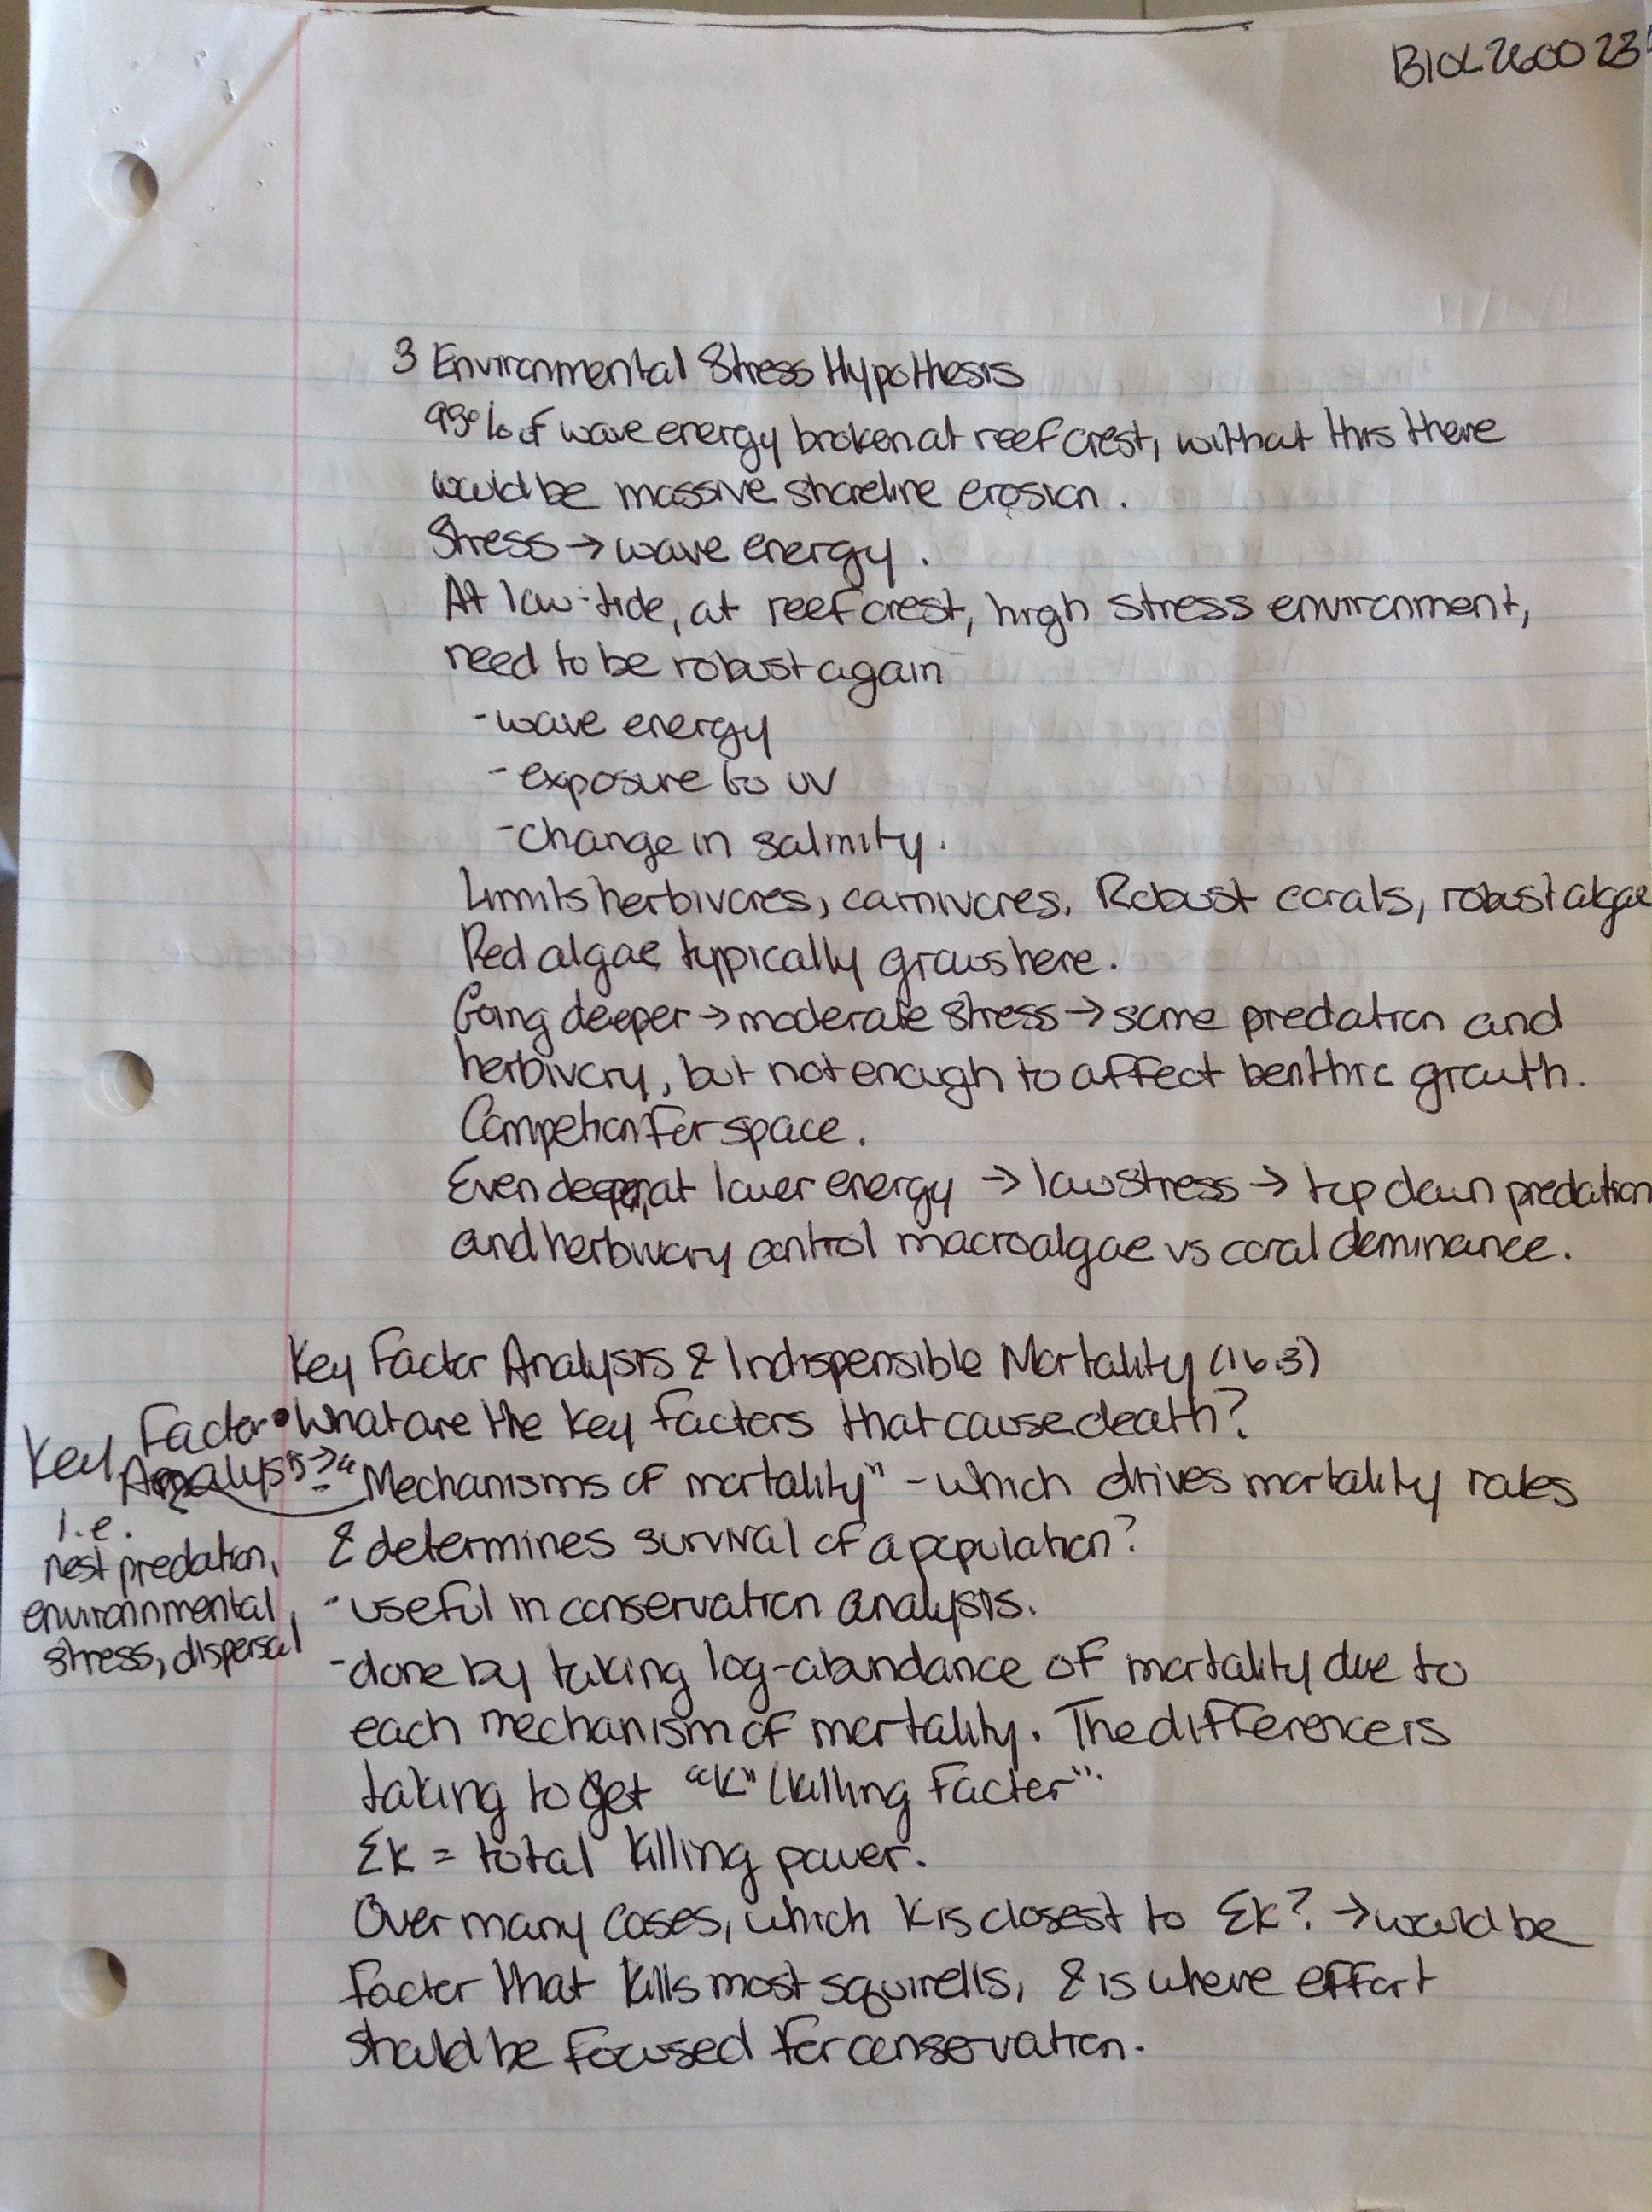 BIOL2600 23
3 Environmental Stress Hypothesis
99% of wave energy broken at reef crest, without this there
would be massive shoreline erosion.
Stress → wave energy.
At low-tide, at reef crest, high stress environment,
need to be robust again
- wave energy
- exposure to UV
- change in salinity.
Limits herbivores, carnivores. Robust corals, robust algae
Red algae typically grows here.
Going deeper → moderate stress → some predation and
herbivory, but not enough to affect benthic growth.
Competion for space.
Even deeper, at lower energy → low stress → top down predation
and herbivory control macroalgae vs coral dominance.
Key Factor Analysis & Indispensible Mortality (16.3)
• What are the key factors that cause death?
Key Factor
Analysis →
"Mechanisms of mortality" - which drives mortality rates
& determines survival of a population?
i.e.
nest predation,
environnmental
stress, dispersal
- useful in conservation analysis.
- done by taking log-abundance of mortality due to
each mechanism of mortality. The difference is
taking to get "K" (killing factor".
Σk = total killing power.
Over many cases, which K is closest to Σk? → would be
factor that kills most squirells, & is where effort
should be focused for conservation.